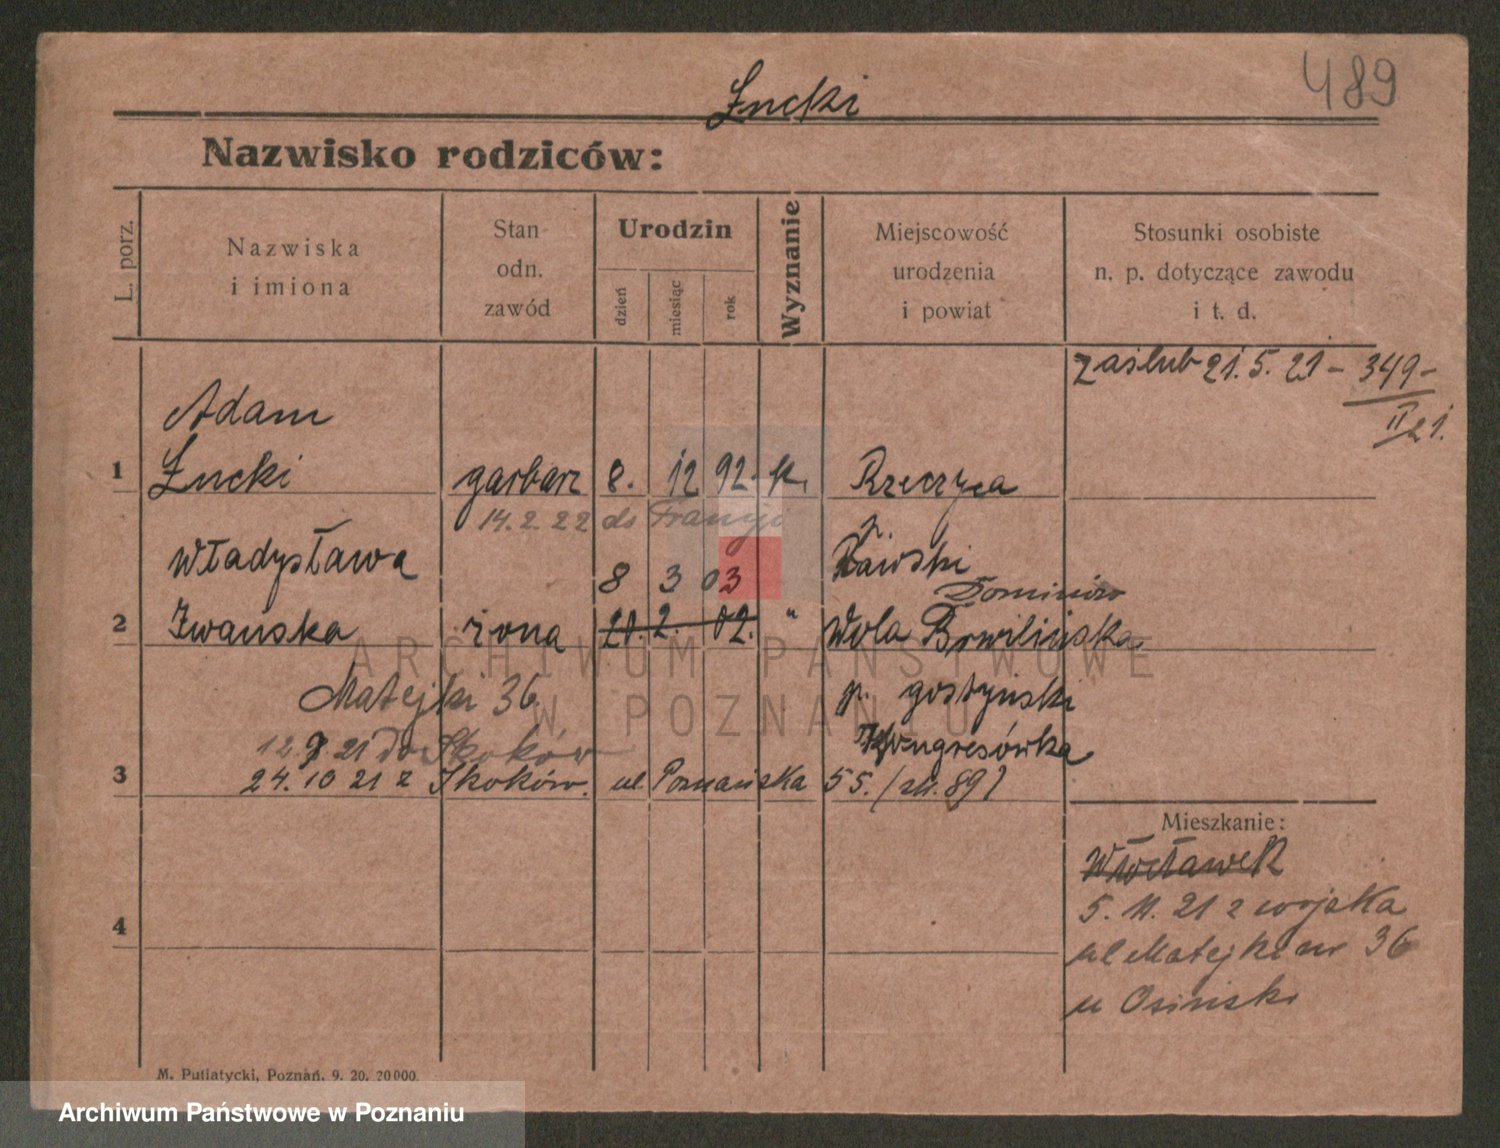 489
Łucki
Nazwisko rodziców:
L. porz.
Nazwiska
i imiona
Stan
odn.
zawód
Urodzin
dzień
miesiąc
rok
Wyznanie
Miejscowość
urodzenia
i powiat
Stosunki osobiste
n. p. dotyczące zawodu
i t. d.
zaślub 21. 5. 21 - 349-
II 21.
Adam
1 Łucki garbarz 8. 12 92. k. Rzeczyca
14. 2. 22 do Francji p.
Władysława Rawski
8 3 03 Dominów
2 Iwańska żona 20. 2. 02. " Wola Brwilińska
Matejki 36. p. gostyński
12 9 21 do Skoków Kongresówka
3 24. 10 21 z Skoków. ul. Poznańska 55. (89)
Mieszkanie:
Włocławek
5. 11. 21 z wojska
4
ul Matejki nr 36
u Osinski
M. Putiatycki, Poznań. 9. 20. 20000.
ARCHIWUM PAŃSTWOWE
W POZNANIU
Archiwum Państwowe w Poznaniu